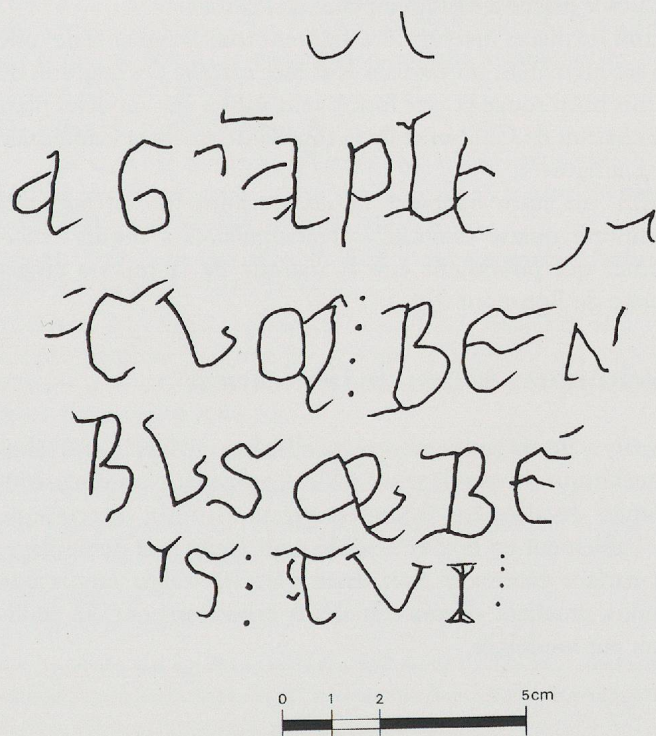 A G A PLE
CVM : BEN
BVS BE
S : TVI ⋮
0 1 2 5cm